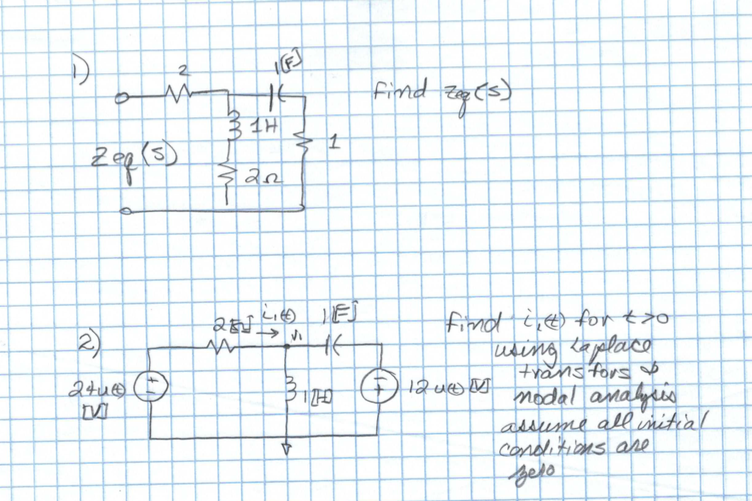 1)
2
1[F]
find Zeq(s)
1H
1
Zeq(s)
2Ω
2)
2[Ω]
i₁(t)
1[F]
V₁
24u(t)
[V]
1[H]
12u(t) [V]
find i₁(t) for t>0
using Laplace
transfors &
nodal analysis
assume all initial
conditions are
zero